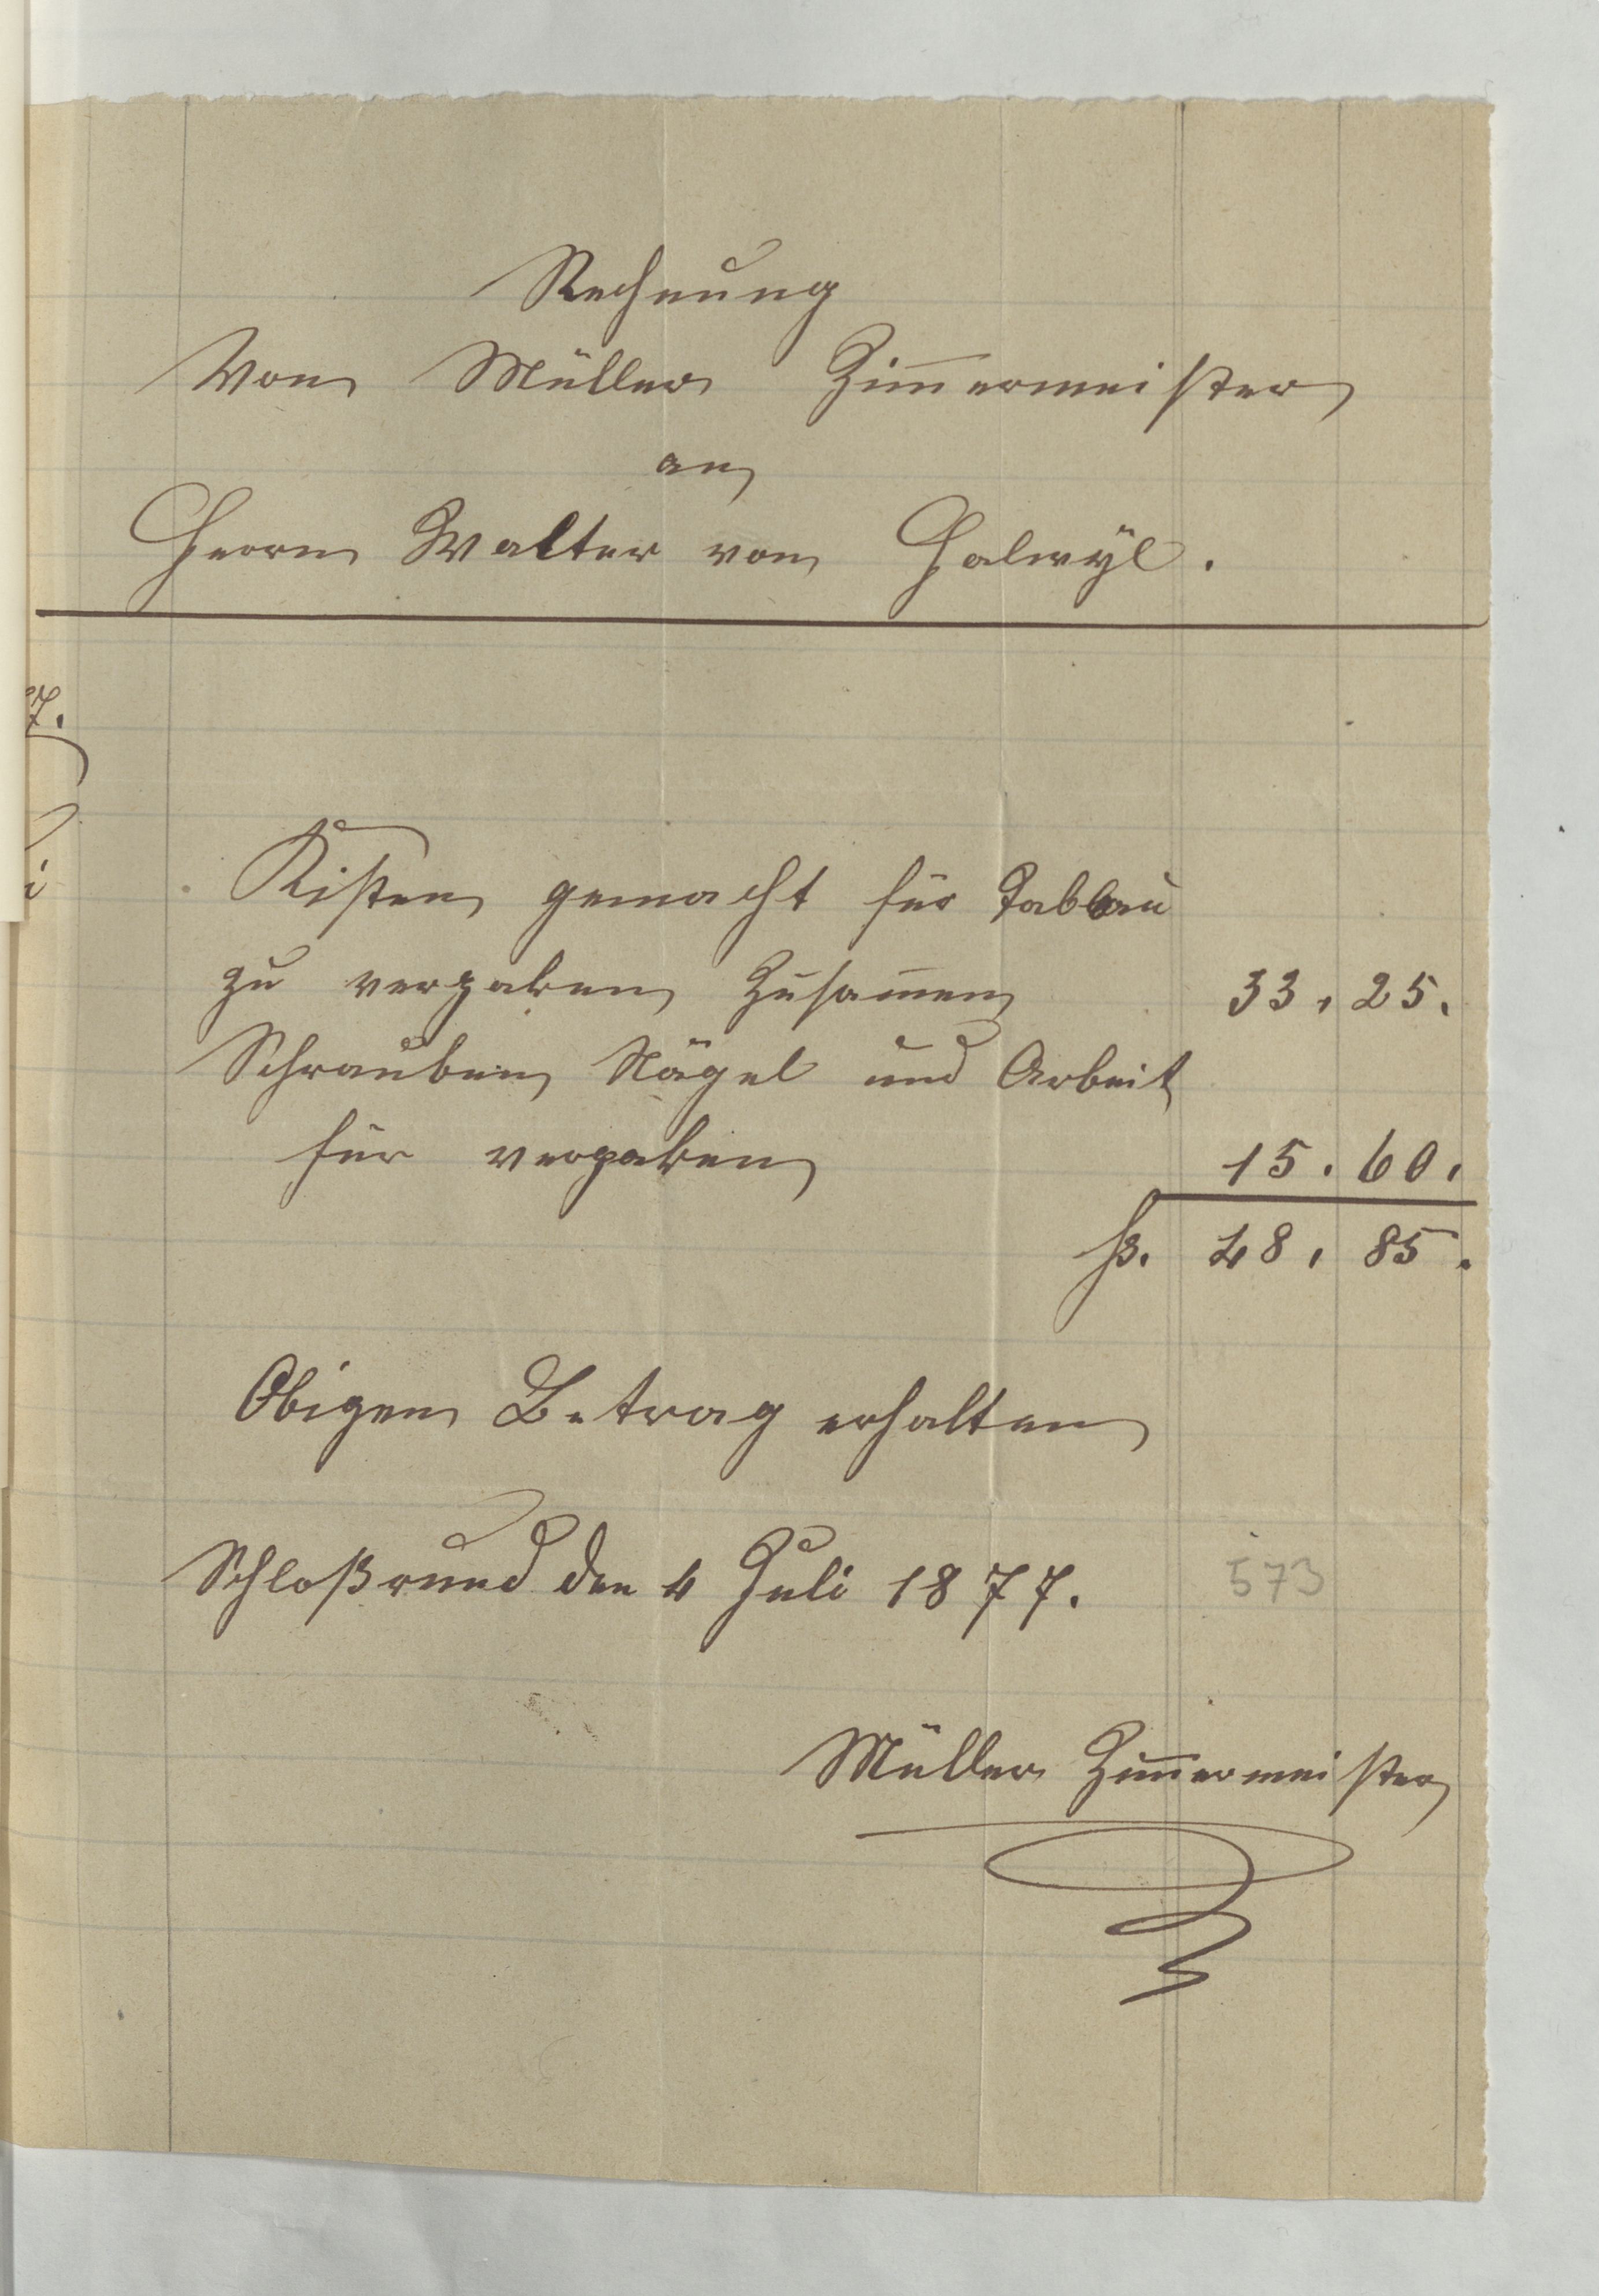 Rechnung
Von Müller Zimmermeister
an
Herrn Walter von Halwÿl.
7.
Kisten gemacht für Tablau
zu verpaken Zusammen 33, 25.
Schrauben Nägel und Arbeit
für verpaken 15. 60.
fr. 48, 85.
Obigen Betrag erhalten
Schloßrued den 4 Juli 1877. 573
Müller Zimmermeister